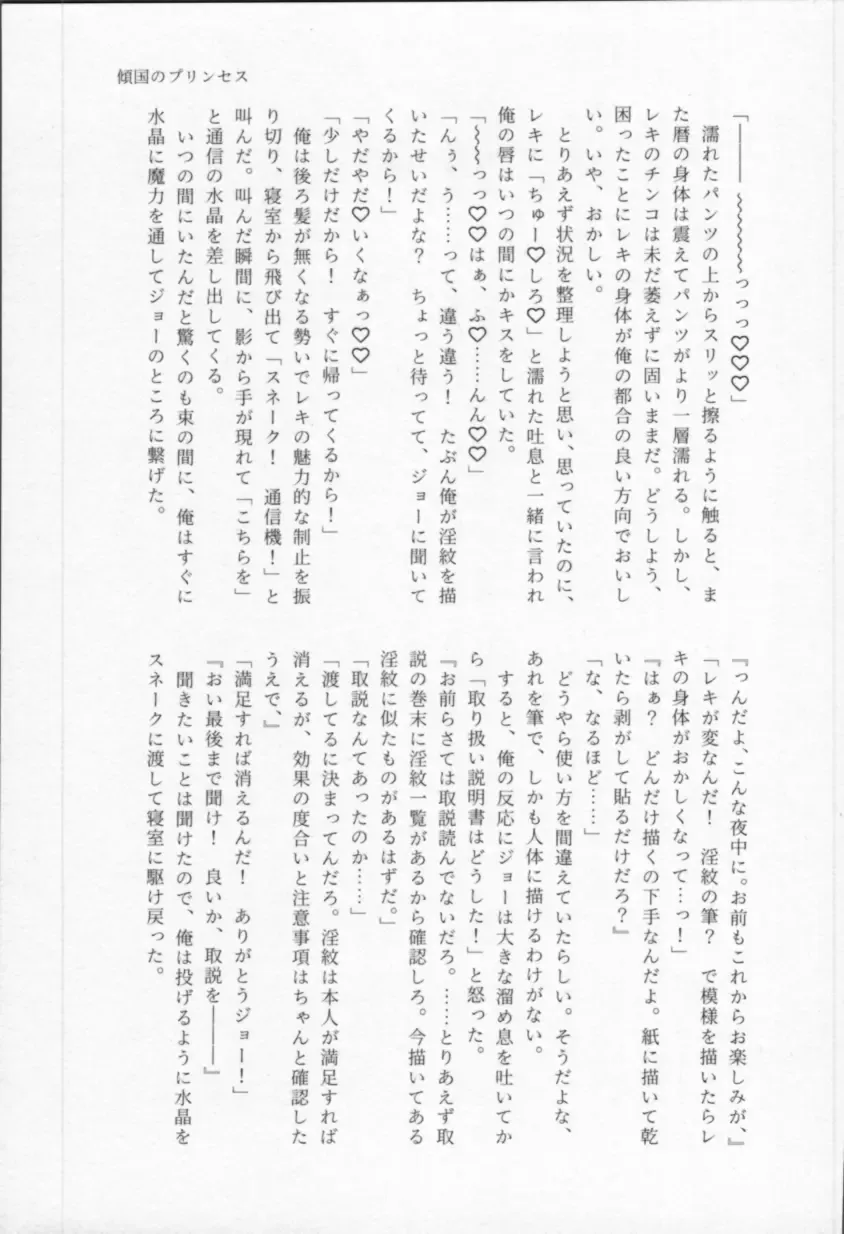 傾国のプリンセス
「――― ～～～～～っっっ♡♡♡」
　濡れたパンツの上からスリッと擦るように触ると、ま
た暦の身体は震えてパンツがより一層濡れる。しかし、
レキのチンコは未だ萎えずに固いままだ。どうしよう、
困ったことにレキの身体が俺の都合の良い方向でおいし
い。いや、おかしい。
　とりあえず状況を整理しようと思い、思っていたのに、
レキに「ちゅー♡しろ♡」と濡れた吐息と一緒に言われ
俺の唇はいつの間にかキスをしていた。
「～～～っっ♡♡はぁ、ふ♡……んん♡♡」
「んぅ、う……って、違う違う！　たぶん俺が淫紋を描
いたせいだよな？　ちょっと待ってて、ジョーに聞いて
くるから！」
「やだやだ♡いくなぁっ♡♡」
「少しだけだから！　すぐに帰ってくるから！」
　俺は後ろ髪が無くなる勢いでレキの魅力的な制止を振
り切り、寝室から飛び出て「スネーク！　通信機！」と
叫んだ。叫んだ瞬間に、影から手が現れて「こちらを」
と通信の水晶を差し出してくる。
　いつの間にいたんだと驚くのも束の間に、俺はすぐに
水晶に魔力を通してジョーのところに繋げた。
『っんだよ、こんな夜中に。お前もこれからお楽しみが、』
「レキが変なんだ！　淫紋の筆？　で模様を描いたらレ
キの身体がおかしくなって…っ！」
『はぁ？　どんだけ描くの下手なんだよ。紙に描いて乾
いたら剥がして貼るだけだろ？』
「な、なるほど……」
　どうやら使い方を間違えていたらしい。そうだよな、
あれを筆で、しかも人体に描けるわけがない。
　すると、俺の反応にジョーは大きな溜め息を吐いてか
ら「取り扱い説明書はどうした！」と怒った。
『お前らさては取説読んでないだろ。……とりあえず取
説の巻末に淫紋一覧があるから確認しろ。今描いてある
淫紋に似たものがあるはずだ。」
「取説なんてあったのか……」
「渡してるに決まってんだろ。淫紋は本人が満足すれば
消えるが、効果の度合いと注意事項はちゃんと確認した
うえで、』
「満足すれば消えるんだ！　ありがとうジョー！」
『おい最後まで聞け！　良いか、取説を―――』
　聞きたいことは聞けたので、俺は投げるように水晶を
スネークに渡して寝室に駆け戻った。